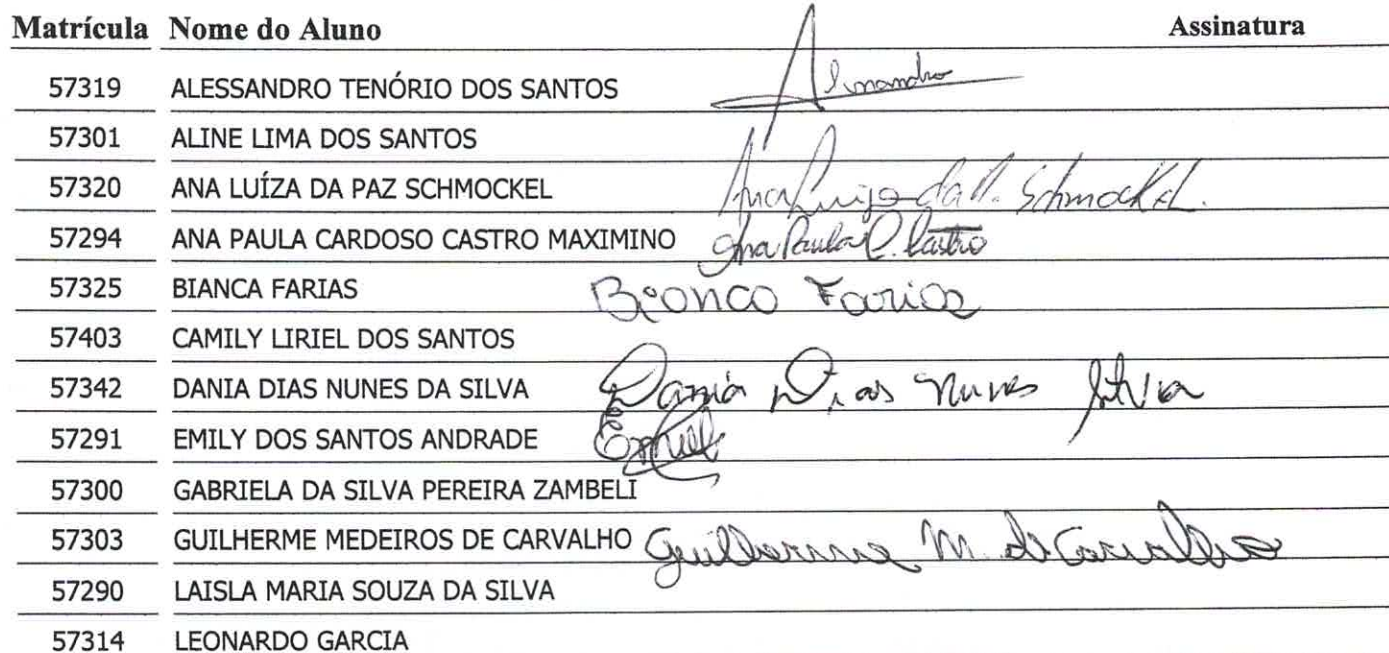 Matrícula Nome do Aluno Assinatura
57319 ALESSANDRO TENÓRIO DOS SANTOS
57301 ALINE LIMA DOS SANTOS
57320 ANA LUÍZA DA PAZ SCHMOCKEL Ana Luiza da P. Schmockel.
57294 ANA PAULA CARDOSO CASTRO MAXIMINO Ana Paula C. Castro
57325 BIANCA FARIAS Bianca Farias
57403 CAMILY LIRIEL DOS SANTOS
57342 DANIA DIAS NUNES DA SILVA Dania Dias Nunes Silva
57291 EMILY DOS SANTOS ANDRADE
57300 GABRIELA DA SILVA PEREIRA ZAMBELI
57303 GUILHERME MEDEIROS DE CARVALHO Guilherme M. de Carvalho
57290 LAISLA MARIA SOUZA DA SILVA
57314 LEONARDO GARCIA